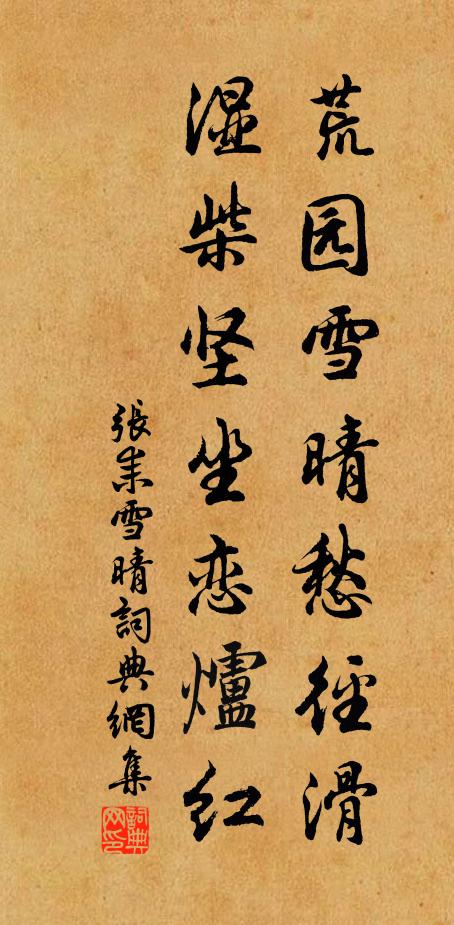 荒园雪晴愁徑滑
湿柴坚坐恋爐红
張耒雪晴詞典網集
詞典网印